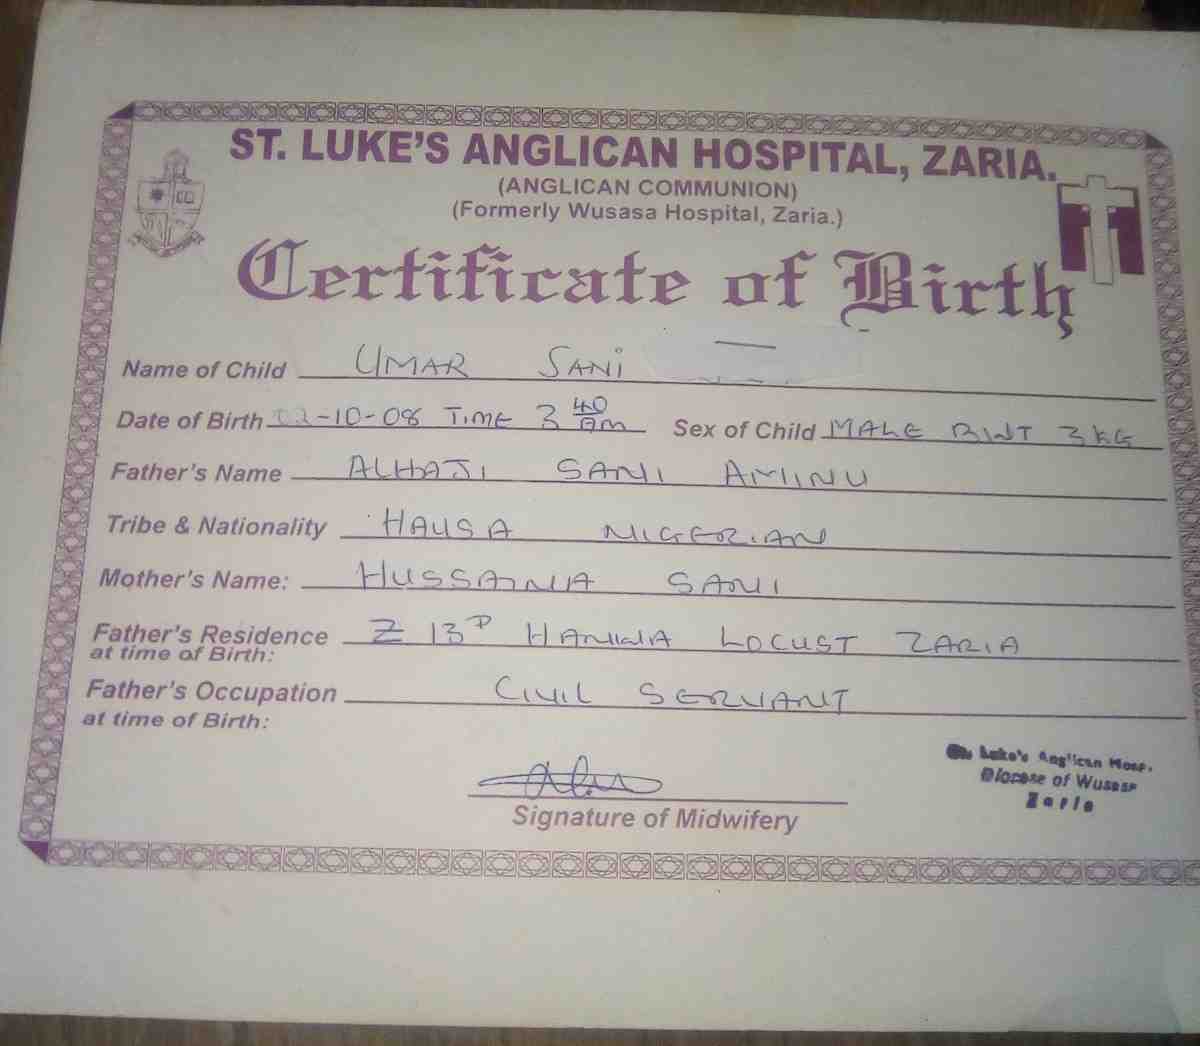 ST. LUKE'S ANGLICAN HOSPITAL, ZARIA.
(ANGLICAN COMMUNION)
(Formerly Wusasa Hospital, Zaria.)
Certificate of Birth
Name of Child UMAR SANI
Date of Birth 02-10-08 TIME 3 40 am Sex of Child MALE BWT 3KG
Father's Name ALHAJI SANI AMINU
Tribe & Nationality HAUSA NIGERIAN
Mother's Name: HUSSAINA SANI
Father's Residence Z 13D HANWA LOCUST ZARIA
at time of Birth:
Father's Occupation CIVIL SERVANT
at time of Birth:
Signature of Midwifery
St. Luke's Anglican Hosp.
Diocese of Wusasa
Zaria